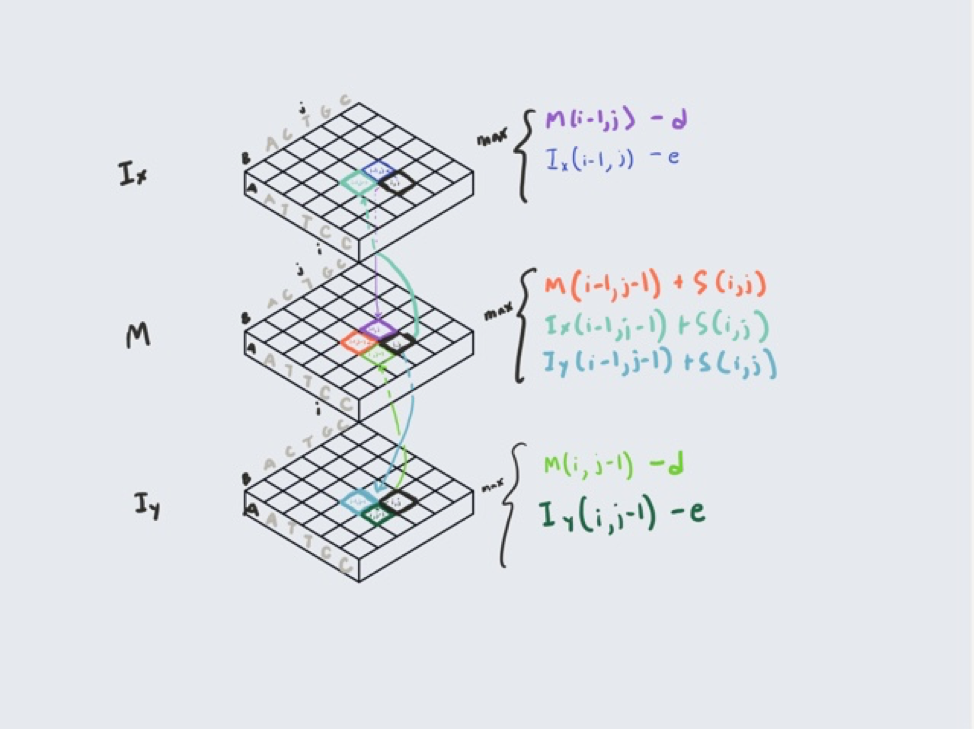 j
A C T G C
B
A
A T T C C
i
Ix
max
M(i-1,j) - d
Ix(i-1,j) - e
j
A C T G C
B
A
A T T C C
i
M
max
M(i-1,j-1) + S(i,j)
Ix(i-1,j-1) + S(i,j)
Iy(i-1,j-1) + S(i,j)
A C T G C
B
A
A T T C C
Iy
max
M(i,j-1) - d
Iy(i,j-1) - e